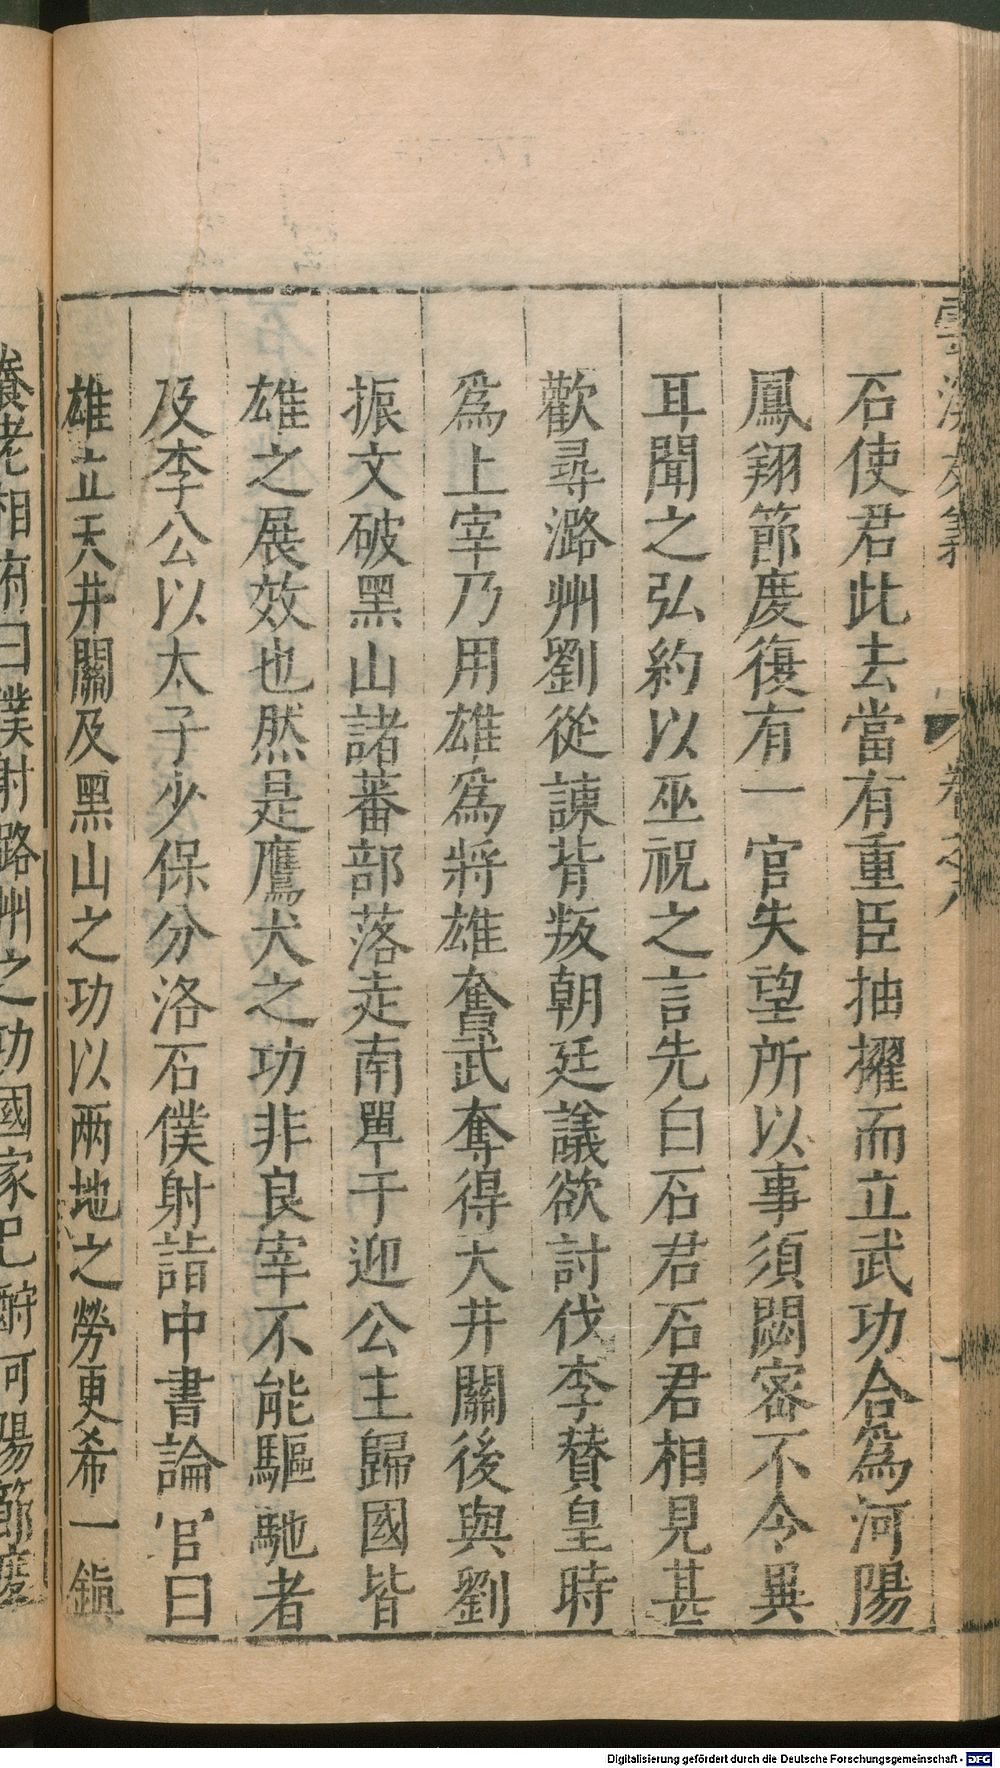 雲溪友議 卷之八
石使君此去當有重臣抽擢而立武功合爲河陽
鳳翔節度復有一官失望所以事須閟密不令異
耳聞之弘約以巫祝之言先白石君石君相見甚
歡尋潞州劉從諫背叛朝廷議欲討伐李贊皇時
爲上宰乃用雄爲將雄奮武奪得大井關後與劉
振文破黑山諸蕃部落走南單于迎公主歸國皆
雄之展效也然是鷹犬之功非良宰不能驅馳者
及李公以太子少保分洛石僕射詣中書論官曰
雄立天井關及黑山之功以兩地之勞更希一鎮
養老相府曰僕射潞州之功國家已酬河陽節度
Digitalisierung gefördert durch die Deutsche Forschungsgemeinschaft - DFG